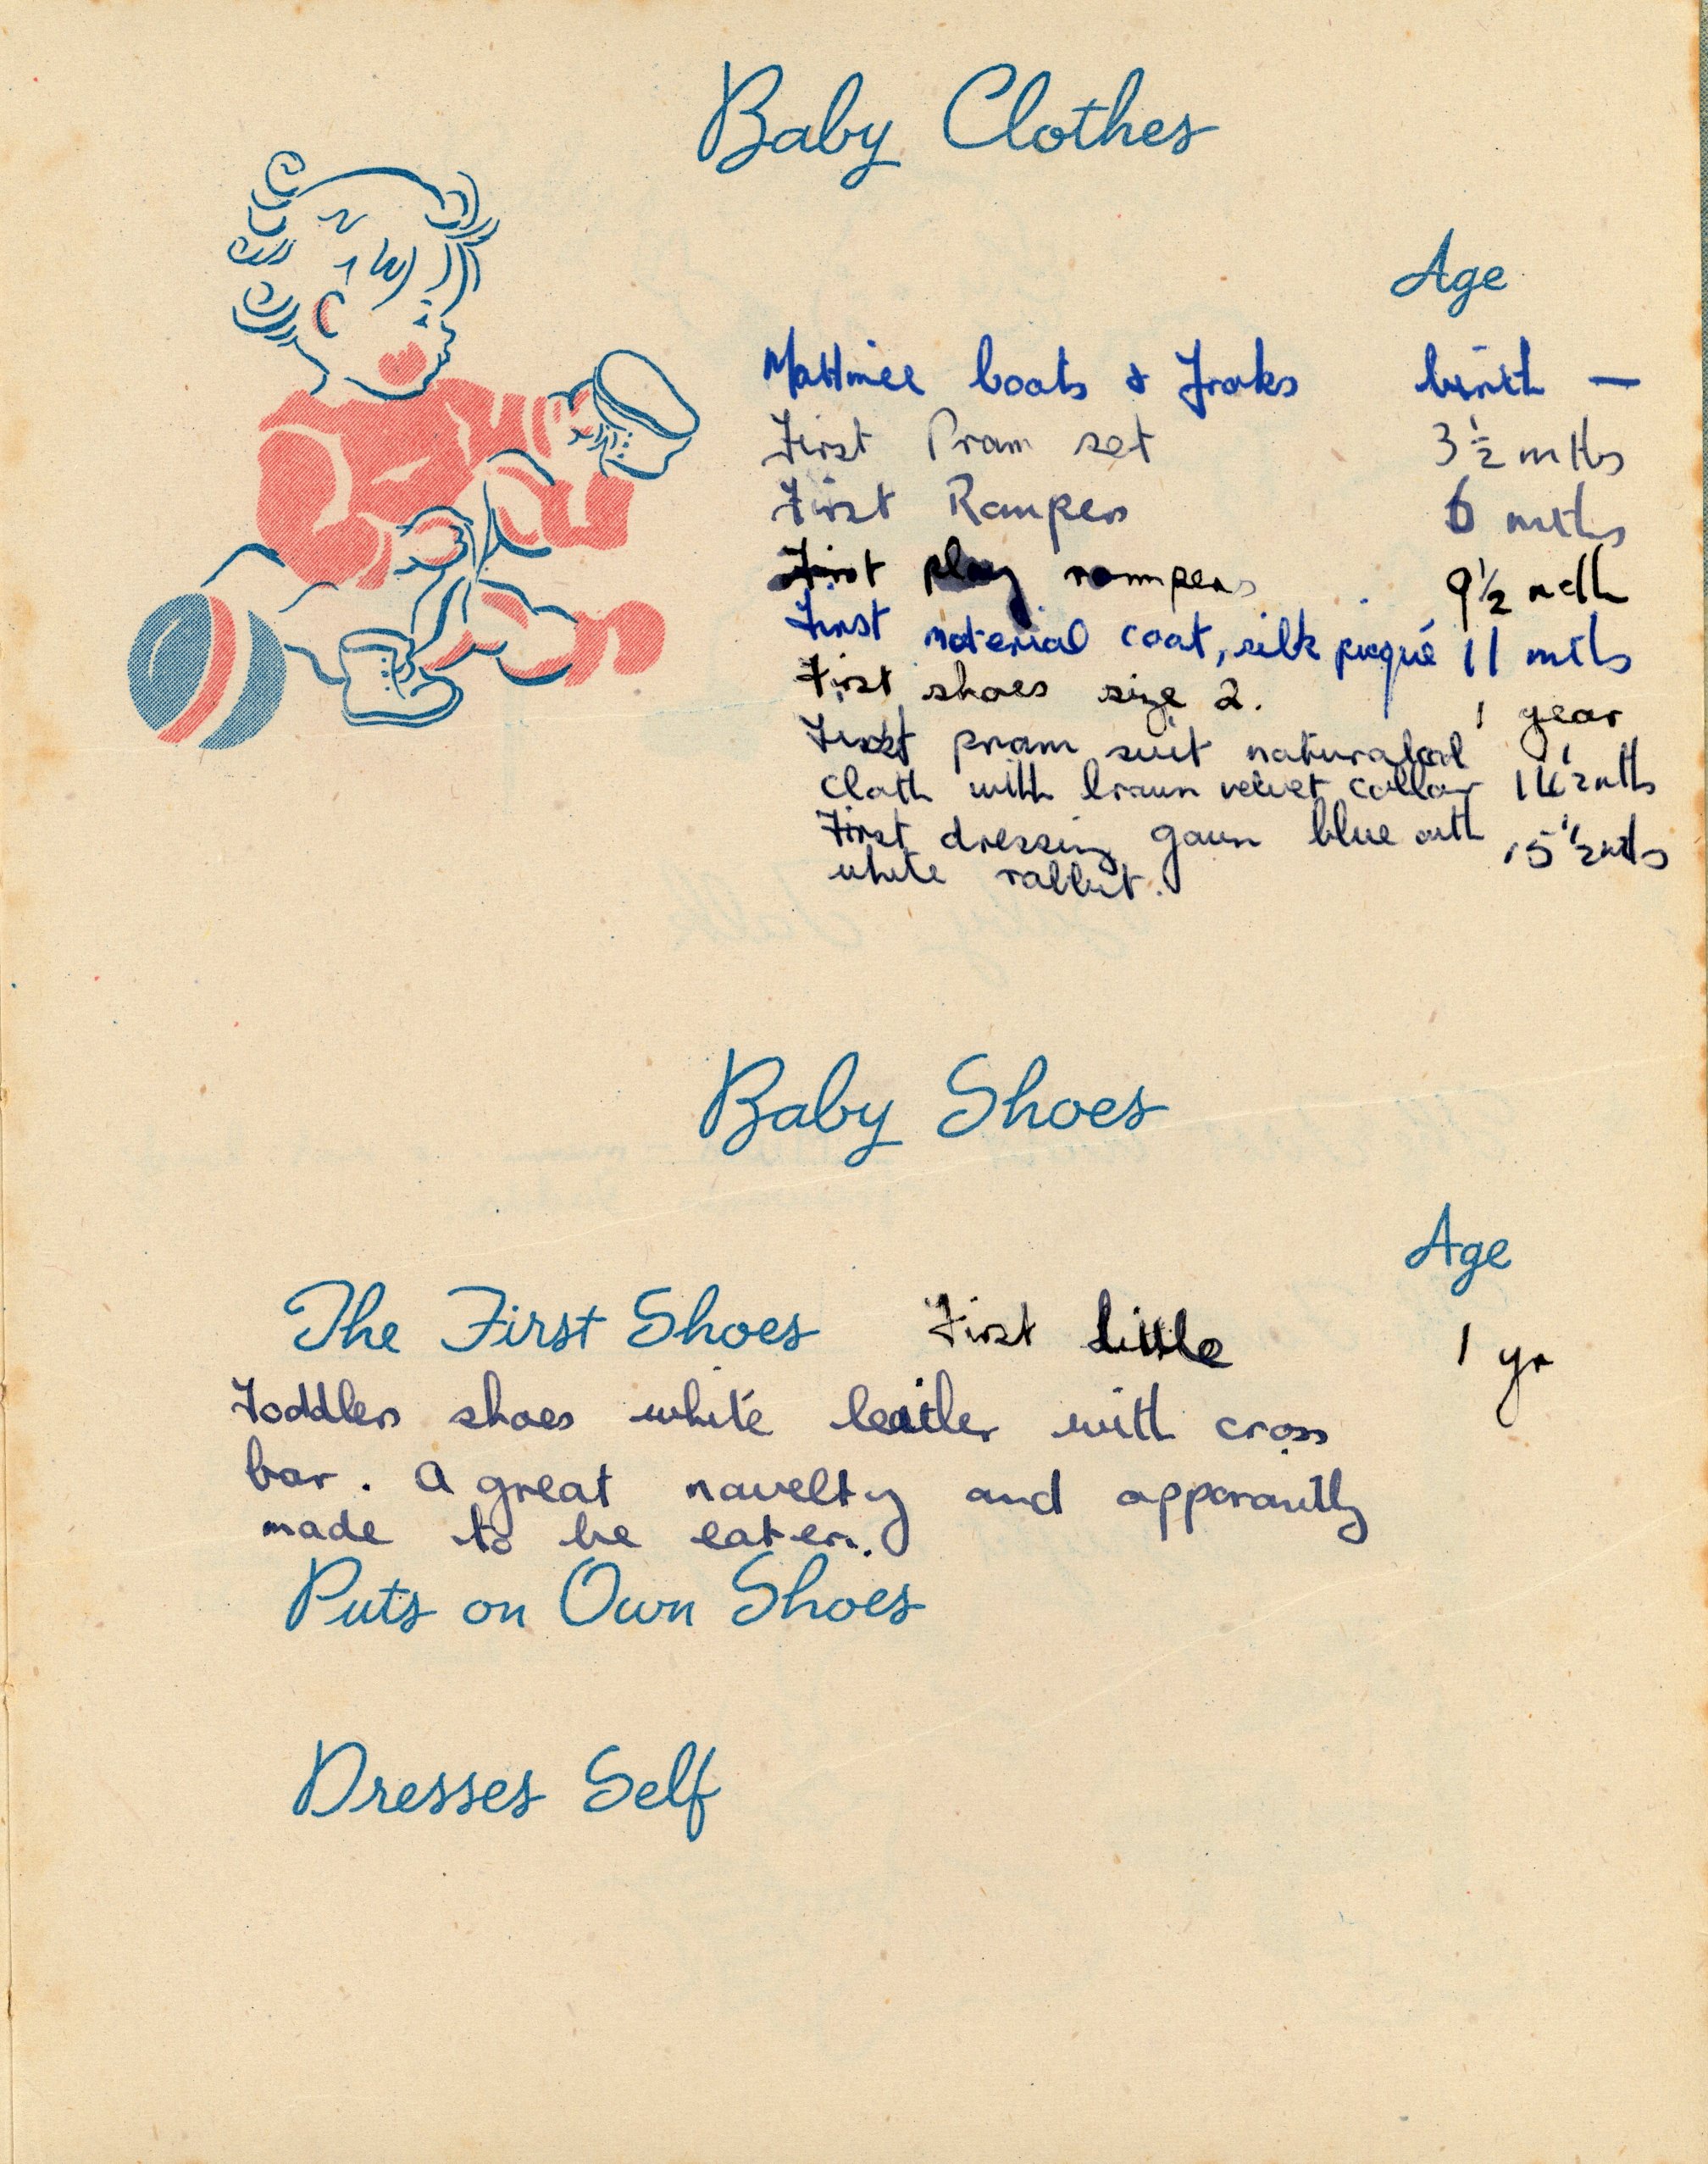 Baby Clothes
Age
Mattinee coats & Froks birth —
First Pram set 3½ mths
First Rompers 6 mths
First play rompers 9½ mth
First material coat, silk piqué 11 mths
First shoes size 2. 1 year
First pram suit natural
cloth with brown velvet collar 14½ mths
First dressing gown blue with 15½ mts
white rabbit.
Baby Shoes
Age
The First Shoes First little 1 yr
Toddlers shoes white leather with cross
bar. A great novelty and apparantly
made to be eaten.
Puts on Own Shoes
Dresses Self